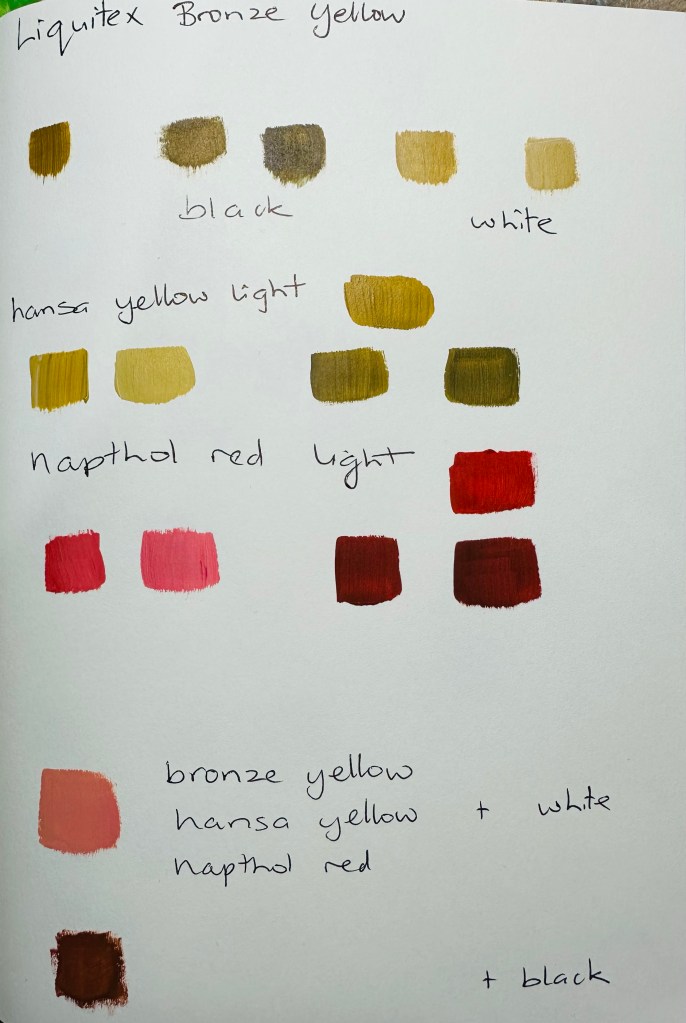 Liquitex Bronze Yellow
black
white
hansa yellow light
napthol red light
bronze yellow
hansa yellow + white
napthol red
+ black